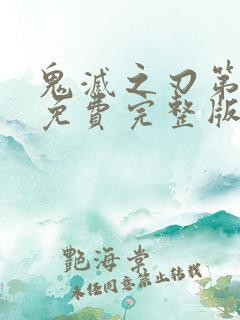 鬼滅之刃第
免費完整版
艷海棠
未經同意禁止轉載